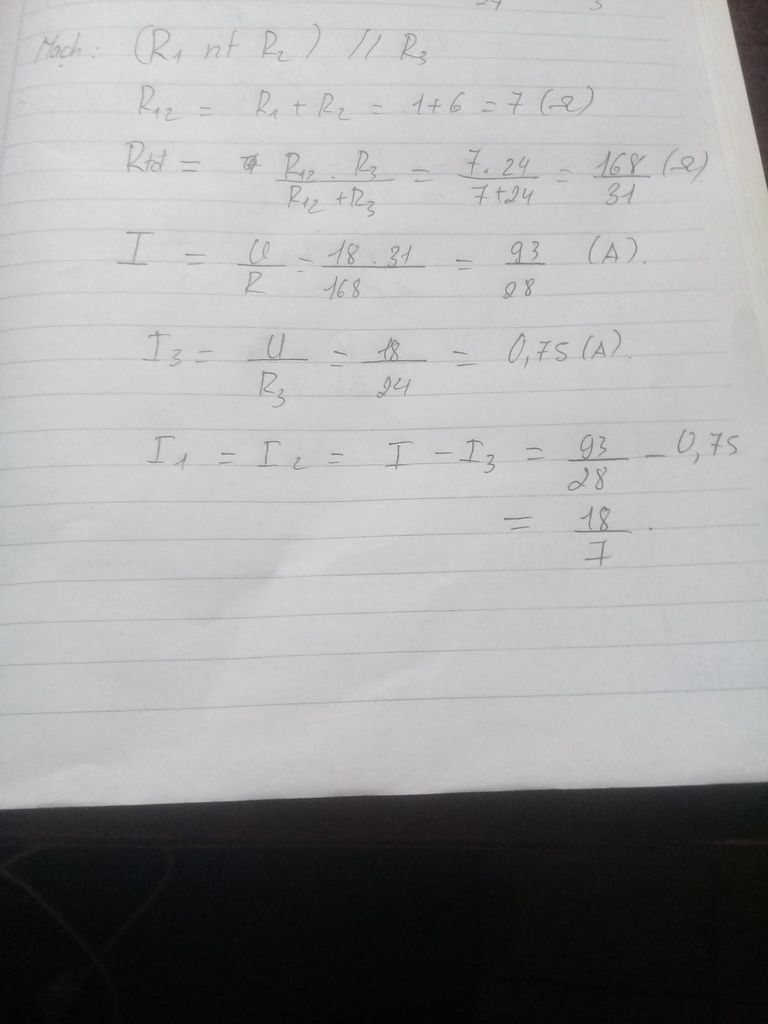 24 3
Mạch: (R1 nt R2) // R3
R12 = R1 + R2 = 1+6 = 7 (Ω)
Rtđ = R12 . R3 / R12 + R3 = 7 . 24 / 7+24 = 168 / 31 (Ω)
I = U / R = 18 . 31 / 168 = 93 / 28 (A).
I3 = U / R3 = 18 / 24 = 0,75 (A).
I1 = I2 = I - I3 = 93 / 28 - 0,75
= 18 / 7 .